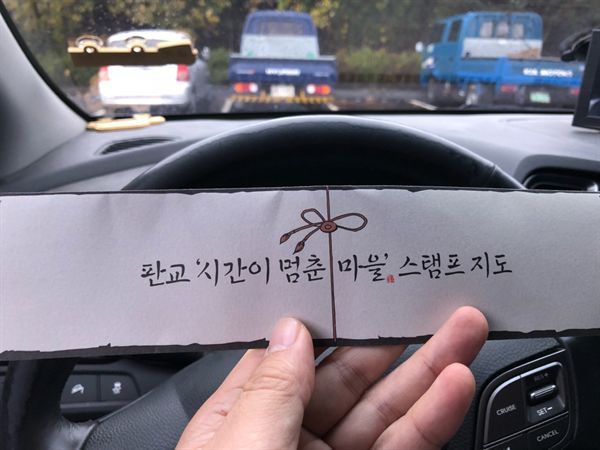 판교 '시간이 멈춘 마을' 스탬프 지도
CRUISE
SET-